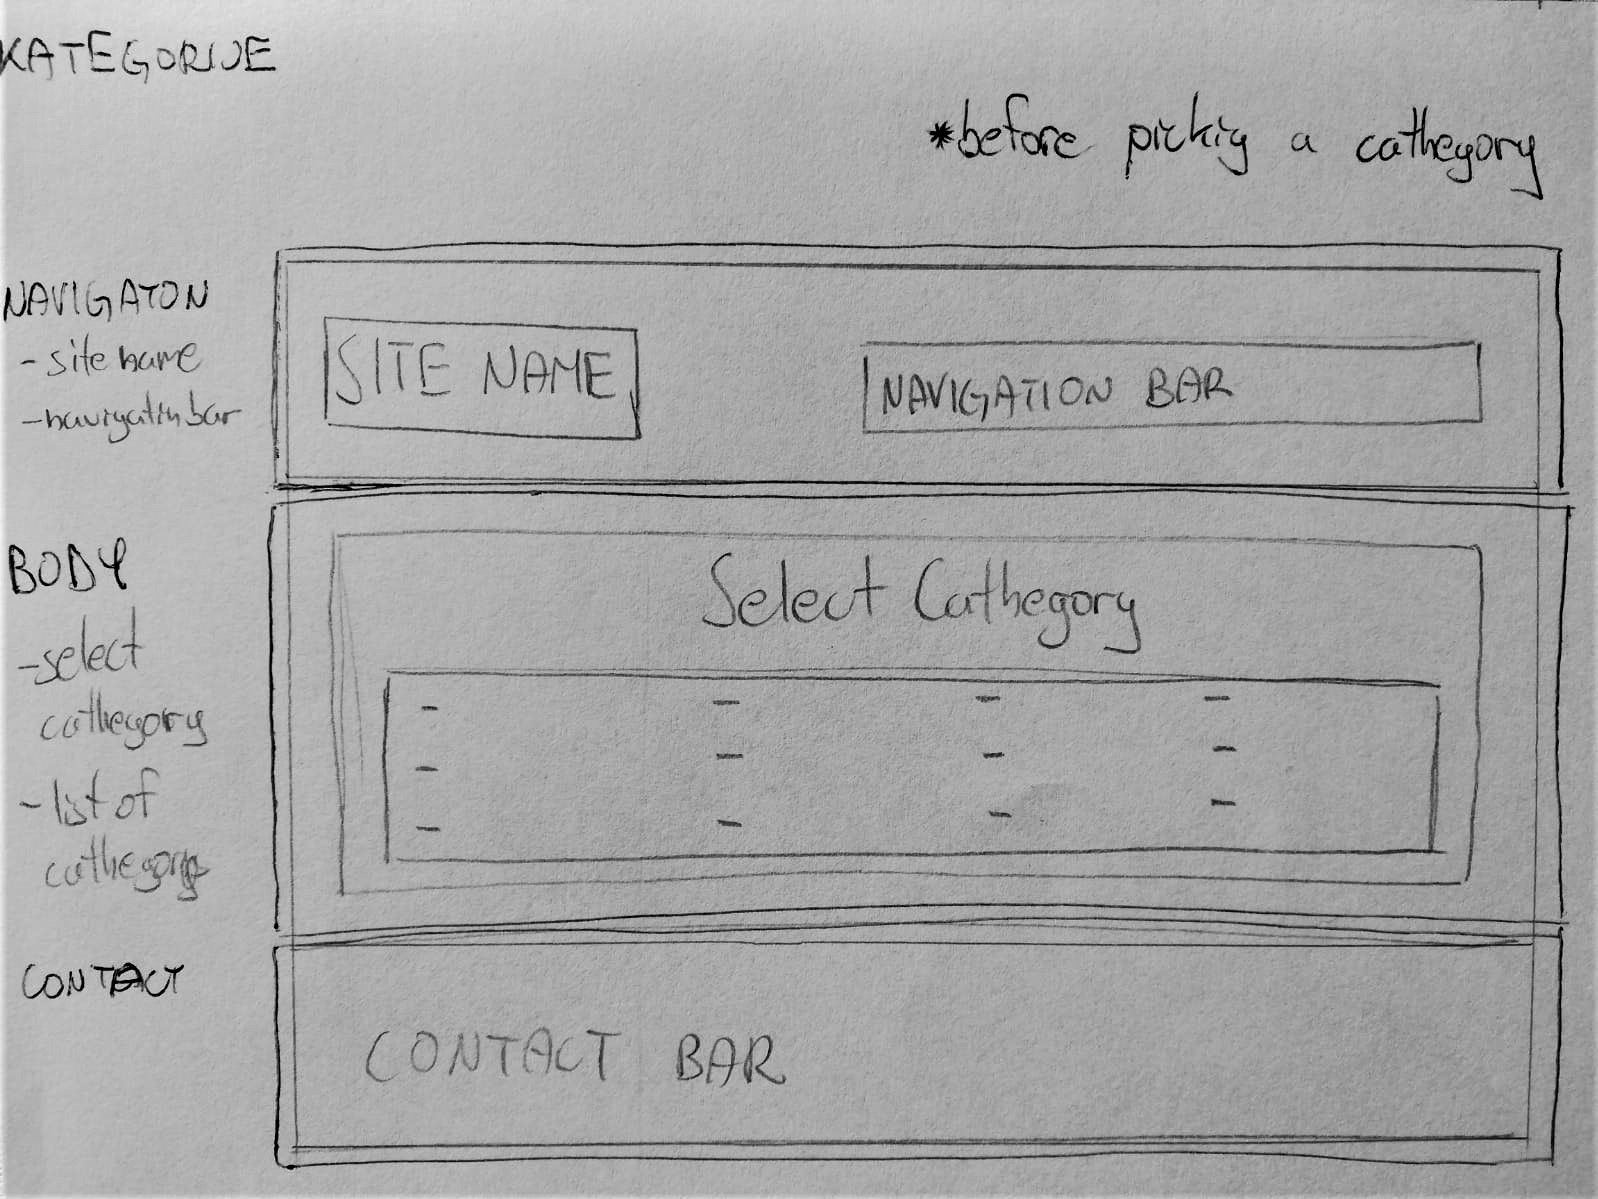 KATEGORIJE
*before pickig a cathegory
NAVIGATON
- site name
- navigatin bar
SITE NAME
NAVIGATION BAR
BODY
- select
cathegory
- list of
cathegory
Select Cathegory
- - - -
- - - -
- - - -
CONTACT
CONTACT BAR